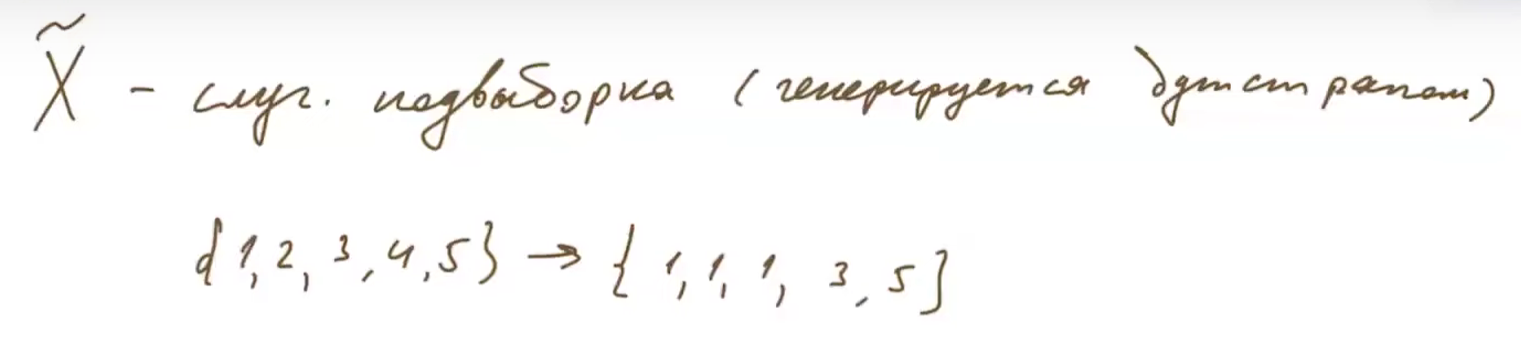 X̃ - случ. подвыборка (генерируется бутстрапом)
{1, 2, 3, 4, 5} → {1, 1, 1, 3, 5}